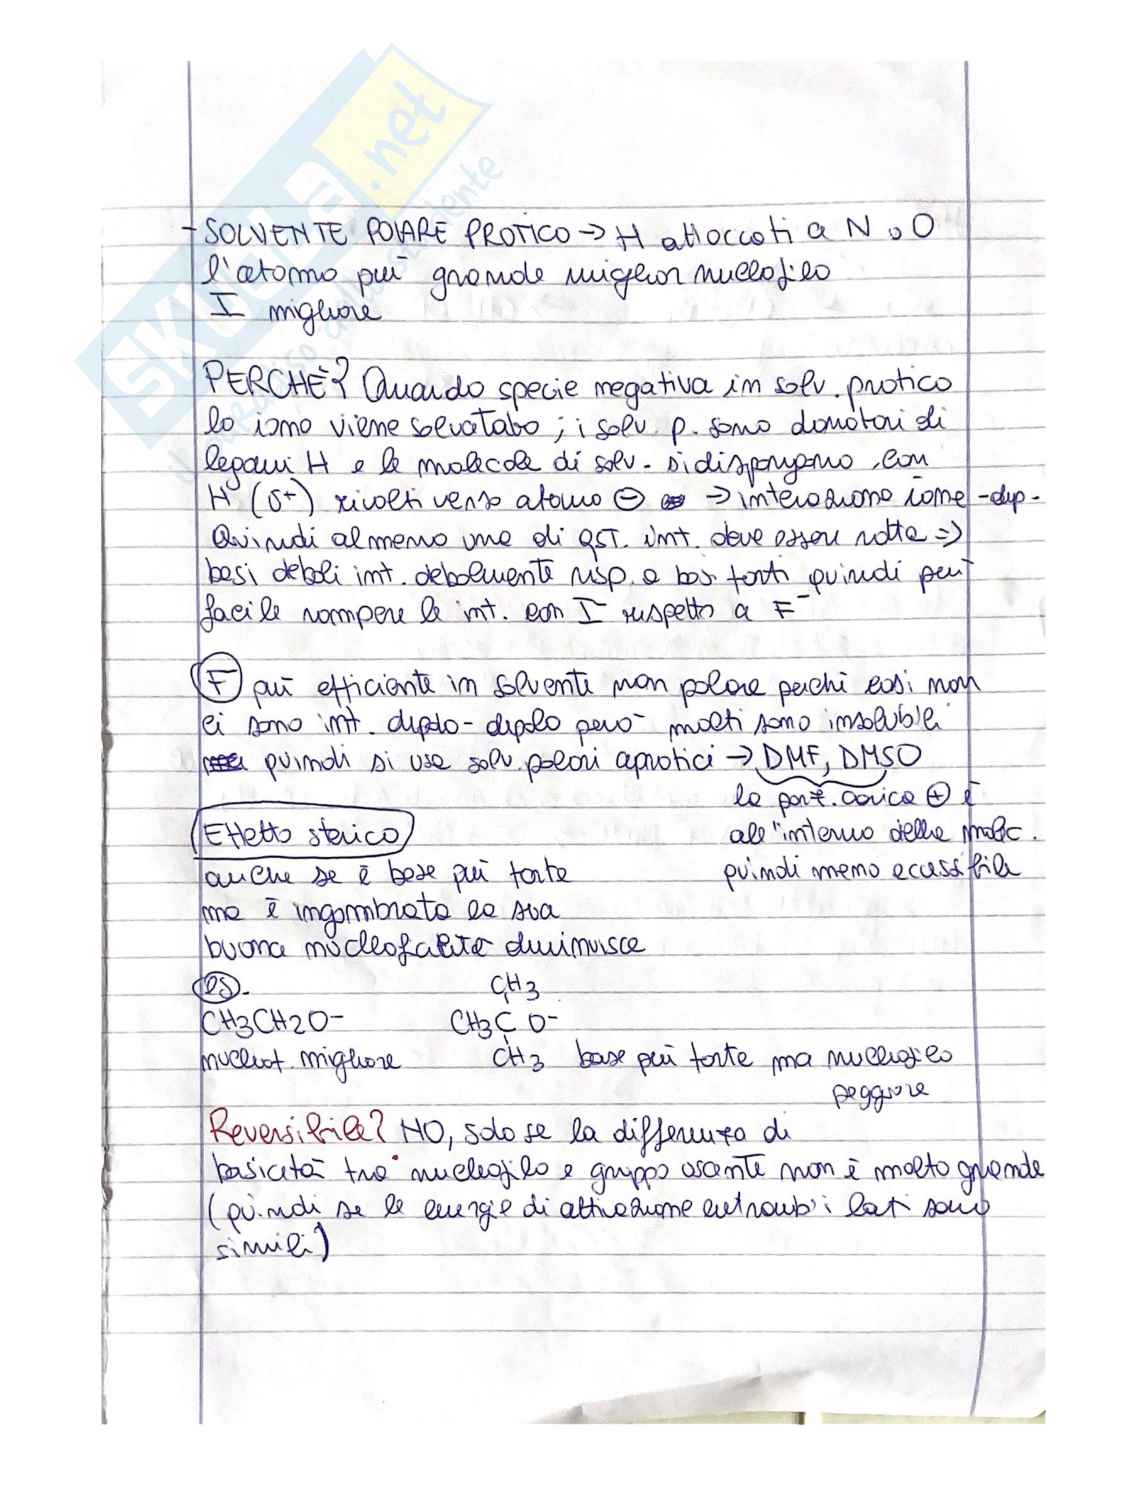 SKUOLA.net
- SOLVENTE POLARE PROTICO → H attaccati a N o O
l'atomo più grande miglior nucleofilo
I migliore
PERCHÈ? Quando specie negativa in solv. protico
lo ione viene solvatato ; i solv. p. sono donatori di
legami H e le molecole di solv. si dispongono con
H (δ+) rivolti verso atomo ⊖ → interazione ione-dip.
Quindi almeno una di qst. int. deve essere rotta ⇒
basi deboli int. debolmente risp. a basi forti quindi più
facile rompere le int. con I⁻ rispetto a F⁻
F più efficiente in solvente non polare perché così non
ci sono int. dipolo-dipolo però molti sono insolubili
quindi si usa solv. polari aprotici → DMF, DMSO
la part. carica ⊕ è
all'interno della molec.
quindi meno accessibile
Effetto sterico
anche se è base più forte
ma è ingombrata la sua
buona nucleofilità diminuisce
es.
CH3
CH3CH2O- CH3C O-
nucleof. migliore CH3 base più forte ma nucleofilo
peggiore
Reversibile? NO, solo se la differenza di
basicità tra nucleofilo e gruppo uscente non è molto grande
(quindi se le energie di attivazione entrambi lati sono
simili)